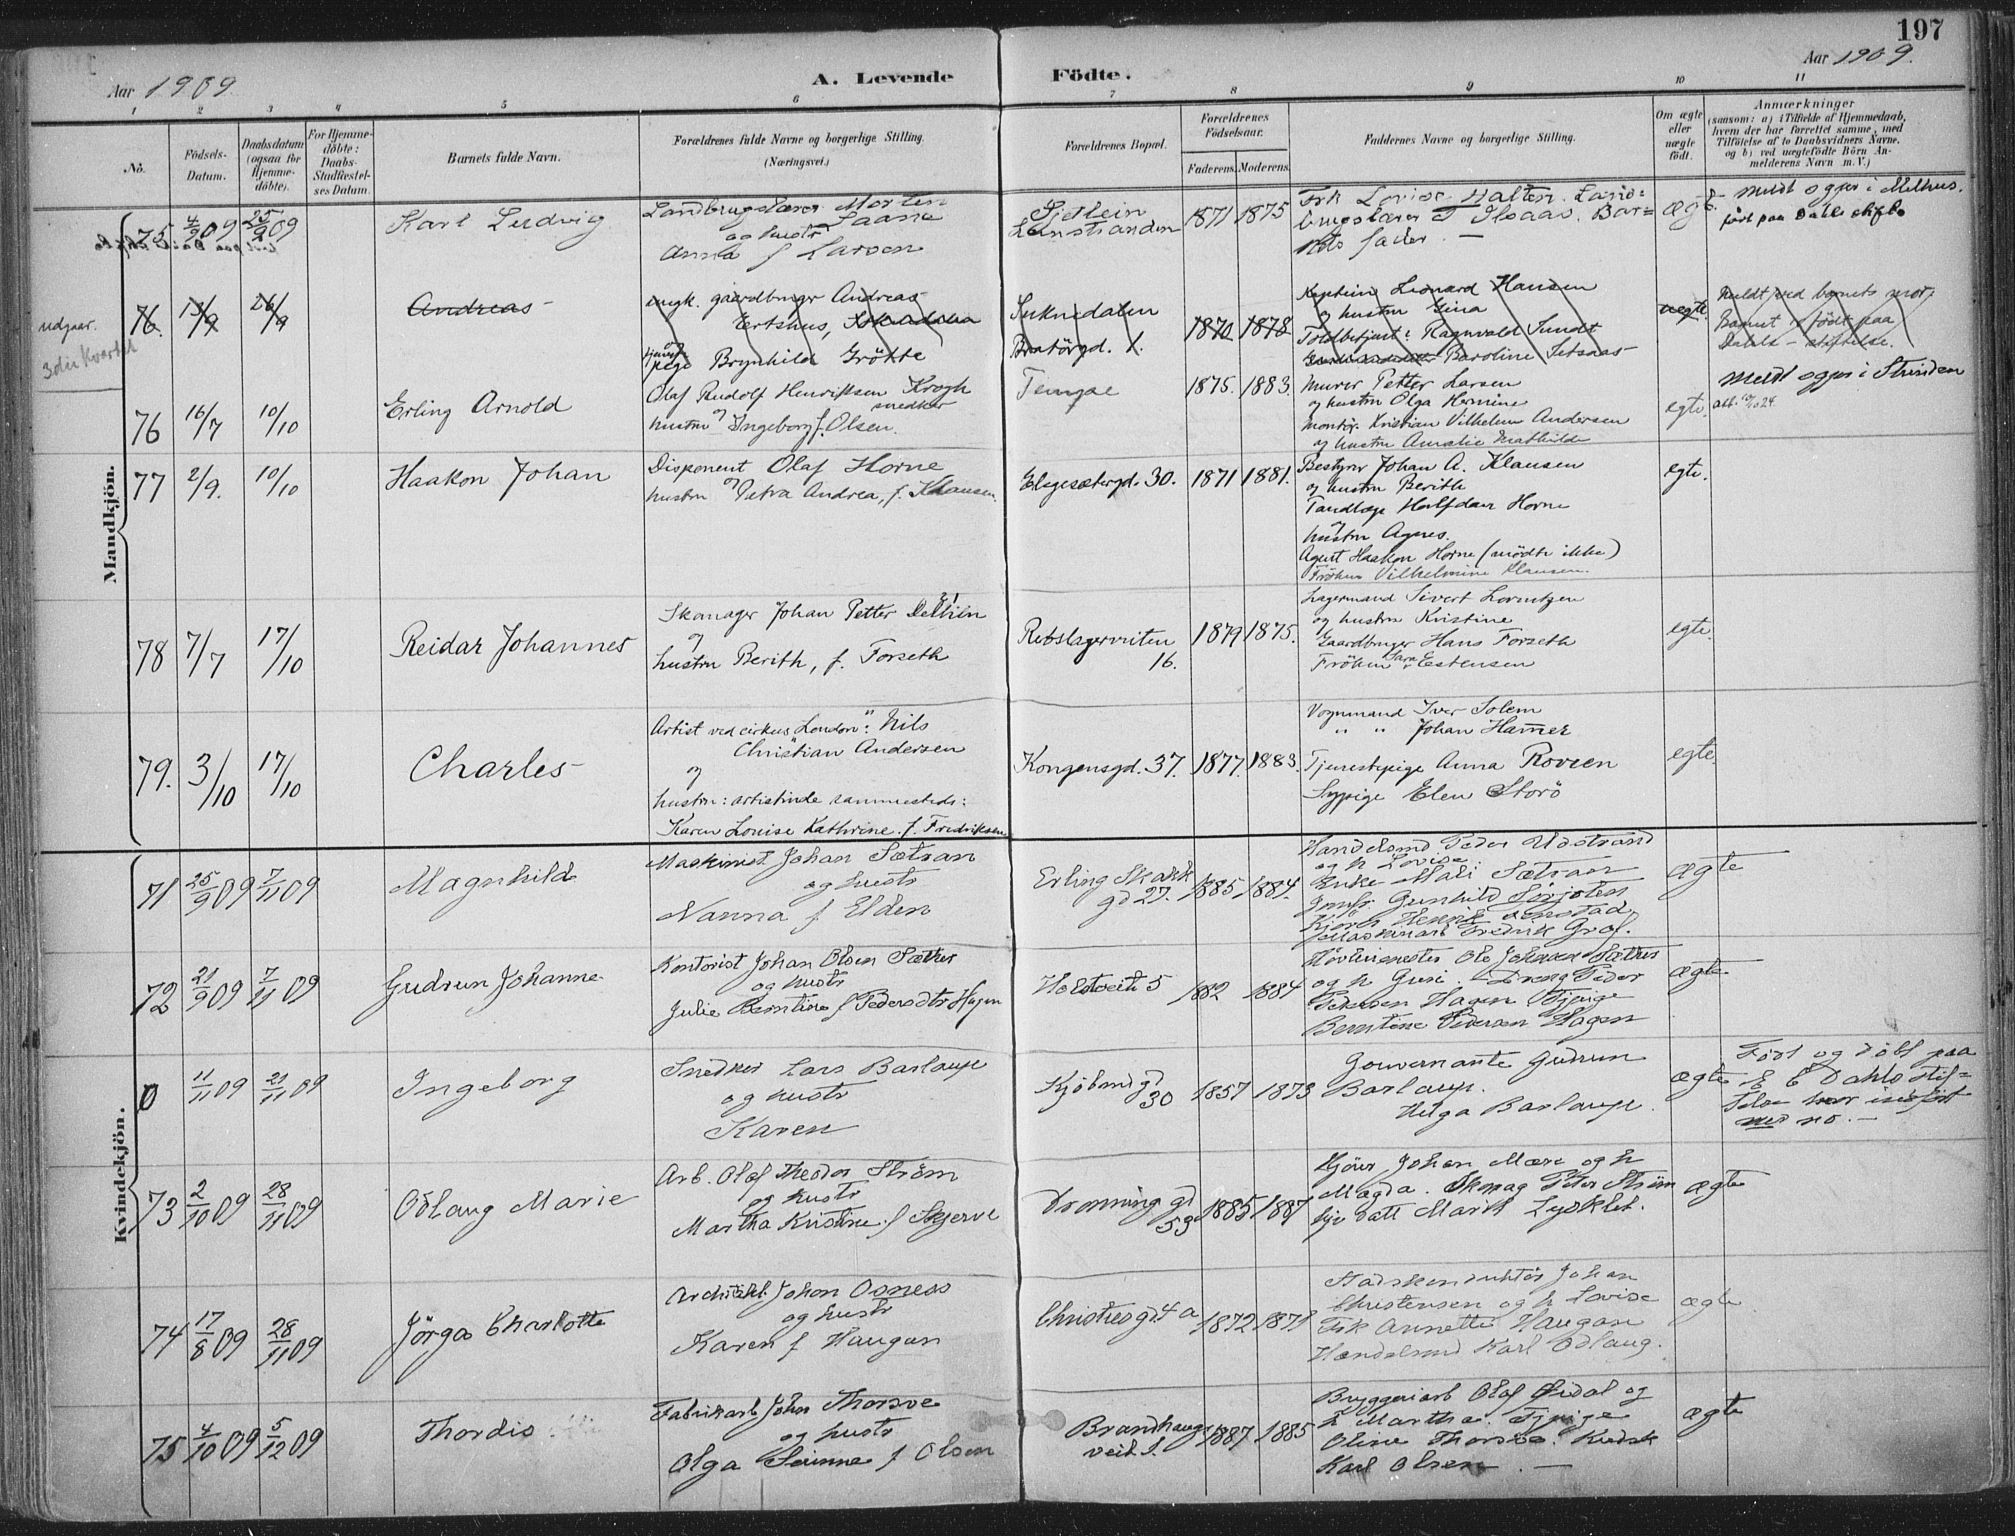 197
Aar 1909.
A. Levende Födte.
Aar 1909.
1 2 3 4 5 6 7 8 9 10 11
No.
Födsels-Datum.
Daabsdatum (ogsaa for Hjemme-döbte).
For Hjemme-döbte: Daabs-Stadfæstel-ses Datum.
Barnets fulde Navn.
Forældrenes fulde Navne og borgerlige Stilling.
(Næringsvei.)
Forældrenes Bopæl.
Forældrenes Födselsaar.
Faderens. Moderens.
Faddernes Navne og borgerlige Stilling.
Om ægte eller uægte födt.
Anmærkninger
(saasom: a) i Tilfælde af Hjemmedaab,
hvem der har forrettet samme, med
Tilföielse af to Daabsvidners Navne,
og b) ved uægtefödte Börn An-
melderens Navn m. V.)
Mandkjön.
75 4/9 09 25/9 09 Karl Ludvig
Landbrugslærer Morten
Saane
og hustr
Anna f Larsen
Leinstranden
1871 1875
Frk Lovise Halten. Land=
brugslærer
nets fader. —
meldt ogsaa i Melhus.
udgaar.
3die Kvartal
76. 13/9 26/9 Andreas
ungk. gaardbruger Andreas
Ertshus,
pige Brynhild Grötte
Suknedalen
Bratörgd. 1.
1870 1878
Kaptein Leonard Hansen
og hustru Gina
Toldbetjent: Ragnvald Sundt
Baroline Setsaas
uegte.
Meldt ved barnets mor.
Barnet er födt paa
Dahls stiftelse.
76 16/7 10/10 Erling Arnold
Olaf Rudolf Henriksen Krogh
snedker
og
hustru Ingeborg f. Olsen.
Tempe
1875. 1883.
Murer Petter Larsen
og hustru Olga Hermine
Montör. Kristian Vilhelm Andersen
og hustru Amalie Mathilde
egte.
Meldt ogsaa i Strinden
77 2/9. 10/10 Haakon Johan
Disponent Olaf Horne
og
hustru Petra Andrea, f. Klausen.
Elgesætergd. 30.
1871 1881.
Bestyrer Johan A. Klausen
og hustru Berith
Tandlæge Halfdan Horne
og
hustru Agnes.
Agent Haakon Horne (mödte ikke)
Fröken Vilhelmine Klausen.
egte.
78 7/7 17/10 Reidar Johannes
Skomager Johan Petter
og
hustru Berith, f. Forseth
Rebslagerveiten
16.
1879 1875.
Lagermand Sivert Lorntzen
og hustru Kristine
Gaardbruger Hans Forseth
Fröken Sara Estensen
egte.
79. 3/10 17/10 Charles
Artist ved cirkus "London": Nils
Christian Andersen
og
hustru: artistinde sammesteds:
Karen Louise Kathrine. f. Fredriksen
Kongensgd. 37.
1877. 1883.
Vognmand Iver Solem
" " Johan Hammer
Tjenestepige Anna Rovsen
Sypige Elen Storö
egte.
Kvindekjön.
71 25/9 09 7/11 09 Magnhild
Maskinist Johan Sætran
og hustr
Nanna f Elden
Erling Skakk
gd 27.
1885 1884.
Handelsmd Peder Udstrand
og h Lovise.
Enke Mali Sætran
Fredrik Graf.
ægte
72 21/9 09 7/11 09 Gudrun Johanne
Kontorist Johan Olsen Sæther
og hustr
Julie Berntine f Pedersdtr Hagen
1882 1884
Hövlerimester Ole Johnsen Sæther
og h Guri. Dreng Peder
Pedersen Hagen Tjpige
Berntine Pedersen Hagen
ægte
0 11/11 09 21/11 09 Ingeborg
Snedker Lars Barlaup
og hustr
Karen
Kjöbmdgd
30
1857 1873
Gouvernante Gudrun
Barlaup.
Helga Barlaup.
ægte
Födt og döbt paa
E C Dahls stif=
telse hvor indfört
med no. —
73 2/10 09 28/11 09 Odlaug Marie
Arb. Olaf Theodor Ström
og hustr
Martha Kristine f Skjerve
Dronning gd
53
1885 1887
Kjörer Johan Mære og h
Magda. Skomag Peter Ström
Marit Lysklet.
ægte
74 17/8 09 28/11 09 Jörga Charlotte
Architekt Johan Osness
og hustr
Karen f Haugan
Christiesgd 4 a
1872 1871
Stadskonduktör Johan
Christensen og h Lovise
Frk Annette Haugan
Handelsmd Karl Odlaug.
ægte
75 4/10 09 5/12 09 Thordis
Fabrikarb John Thorsve
og hustr
Olga Serinne f Olsen
Brandhaug
veit 1.
1887 1885
Bryggeriarb Olaf Öidal og
h Martha. Tjpige
Oline Thorsve. Kudsk
Karl Olsen. —
ægte